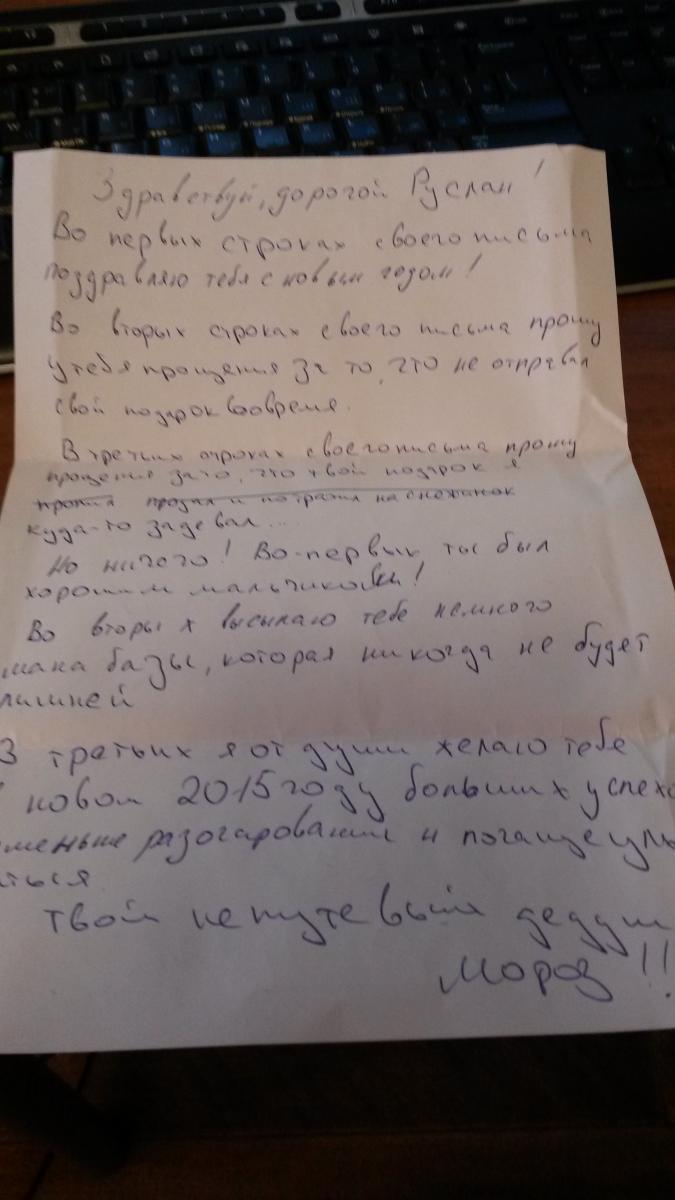 Здравствуй, дорогой Руслан!
Во первых строках своего письма
поздравляю тебя с новым годом!
Во вторых строках своего письма прошу
у тебя прощения за то, что не отправил
свой подарок вовремя.
В третьих строках своего письма прошу
прощения за то, что твой подарок я
пропил продал и потратил на снежинок
куда-то задевал...
Но ничего! Во-первых ты был
хорошим мальчиком!
Во вторых я высылаю тебе немного
мана базы, которая никогда не будет
лишней
В третьих я от души желаю тебе
в новом 2015 году больших успехо
меньше разочарований и почаще улы
аться
Твой непутевый дедуш
Мороз!!